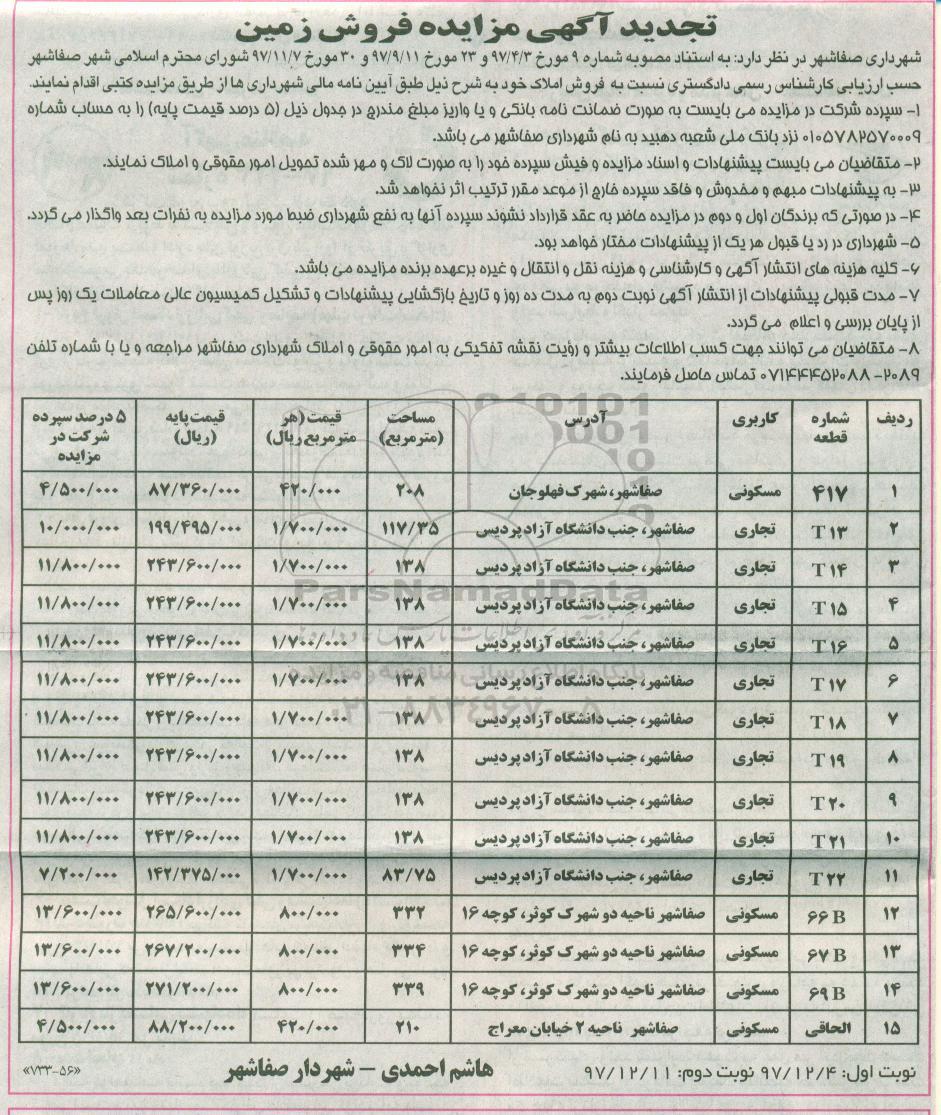 تجدید آگهی مزایده فروش زمین
شهرداری صفاشهر در نظر دارد: به استناد مصوبه شماره ۹ مورخ ۹۷/۴/۳ و ۲۳ مورخ ۹۷/۹/۱۱ و ۳۰ مورخ ۹۷/۱۱/۷ شورای محترم اسلامی شهر صفاشهر
حسب ارزیابی کارشناس رسمی دادگستری نسبت به فروش املاک خود به شرح ذیل طبق آیین نامه مالی شهرداری ها از طریق مزایده کتبی اقدام نمایند.
۱- سپرده شرکت در مزایده می بایست به صورت ضمانت نامه بانکی و یا واریز مبلغ مندرج در جدول ذیل (۵ درصد قیمت پایه) را به حساب شماره
۰۱۰۵۷۸۲۵۷۰۰۰۹ نزد بانک ملی شعبه دهبید به نام شهرداری صفاشهر می باشد.
۲- متقاضیان می بایست پیشنهادات و اسناد مزایده و فیش سپرده خود را به صورت لاک و مهر شده تحویل امور حقوقی و املاک نمایند.
۳- به پیشنهادات مبهم و مخدوش و فاقد سپرده خارج از موعد مقرر ترتیب اثر نخواهد شد.
۴- در صورتی که برندگان اول و دوم در مزایده حاضر به عقد قرارداد نشوند سپرده آنها به نفع شهرداری ضبط مورد مزایده به نفرات بعد واگذار می گردد.
۵- شهرداری در رد یا قبول هر یک از پیشنهادات مختار خواهد بود.
۶- کلیه هزینه های انتشار آگهی و کارشناسی و هزینه نقل و انتقال و غیره برعهده برنده مزایده می باشد.
۷- مدت قبولی پیشنهادات از انتشار آگهی نوبت دوم به مدت ده روز و تاریخ بازگشایی پیشنهادات و تشکیل کمیسیون عالی معاملات یک روز پس
از پایان بررسی و اعلام می گردد.
۸- متقاضیان می توانند جهت کسب اطلاعات بیشتر و رؤیت نقشه تفکیکی به امور حقوقی و املاک شهرداری صفاشهر مراجعه و یا با شماره تلفن
۲۰۸۹-۰۷۱۴۴۴۵۲۰۸۸ تماس حاصل فرمایند.
ردیف شماره قطعه کاربری آدرس مساحت (مترمربع) قیمت (هر مترمربع ریال) قیمت پایه (ریال) ۵ درصد سپرده شرکت در مزایده
۱ ۴۱۷ مسکونی صفاشهر، شهرک فهلوجان ۲۰۸ ۴۲۰/۰۰۰ ۸۷/۳۶۰/۰۰۰ ۴/۵۰۰/۰۰۰
۲ T ۱۳ تجاری صفاشهر، جنب دانشگاه آزاد پردیس ۱۱۷/۳۵ ۱/۷۰۰/۰۰۰ ۱۹۹/۴۹۵/۰۰۰ ۱۰/۰۰۰/۰۰۰
۳ T ۱۴ تجاری صفاشهر، جنب دانشگاه آزاد پردیس ۱۳۸ ۱/۷۰۰/۰۰۰ ۲۴۳/۶۰۰/۰۰۰ ۱۱/۸۰۰/۰۰۰
۴ T ۱۵ تجاری صفاشهر، جنب دانشگاه آزاد پردیس ۱۳۸ ۱/۷۰۰/۰۰۰ ۲۴۳/۶۰۰/۰۰۰ ۱۱/۸۰۰/۰۰۰
۵ T ۱۶ تجاری صفاشهر، جنب دانشگاه آزاد پردیس ۱۳۸ ۱/۷۰۰/۰۰۰ ۲۴۳/۶۰۰/۰۰۰ ۱۱/۸۰۰/۰۰۰
۶ T ۱۷ تجاری صفاشهر، جنب دانشگاه آزاد پردیس ۱۳۸ ۱/۷۰۰/۰۰۰ ۲۴۳/۶۰۰/۰۰۰ ۱۱/۸۰۰/۰۰۰
۷ T ۱۸ تجاری صفاشهر، جنب دانشگاه آزاد پردیس ۱۳۸ ۱/۷۰۰/۰۰۰ ۲۴۳/۶۰۰/۰۰۰ ۱۱/۸۰۰/۰۰۰
۸ T ۱۹ تجاری صفاشهر، جنب دانشگاه آزاد پردیس ۱۳۸ ۱/۷۰۰/۰۰۰ ۲۴۳/۶۰۰/۰۰۰ ۱۱/۸۰۰/۰۰۰
۹ T ۲۰ تجاری صفاشهر، جنب دانشگاه آزاد پردیس ۱۳۸ ۱/۷۰۰/۰۰۰ ۲۴۳/۶۰۰/۰۰۰ ۱۱/۸۰۰/۰۰۰
۱۰ T ۲۱ تجاری صفاشهر، جنب دانشگاه آزاد پردیس ۱۳۸ ۱/۷۰۰/۰۰۰ ۲۴۳/۶۰۰/۰۰۰ ۱۱/۸۰۰/۰۰۰
۱۱ T ۲۲ تجاری صفاشهر، جنب دانشگاه آزاد پردیس ۸۳/۷۵ ۱/۷۰۰/۰۰۰ ۱۴۲/۳۷۵/۰۰۰ ۷/۲۰۰/۰۰۰
۱۲ ۶۶ B مسکونی صفاشهر ناحیه دو شهرک کوثر، کوچه ۱۶ ۳۳۲ ۸۰۰/۰۰۰ ۲۶۵/۶۰۰/۰۰۰ ۱۳/۶۰۰/۰۰۰
۱۳ ۶۷ B مسکونی صفاشهر ناحیه دو شهرک کوثر، کوچه ۱۶ ۳۳۴ ۸۰۰/۰۰۰ ۲۶۷/۲۰۰/۰۰۰ ۱۳/۶۰۰/۰۰۰
۱۴ ۶۹ B مسکونی صفاشهر ناحیه دو شهرک کوثر، کوچه ۱۶ ۳۳۹ ۸۰۰/۰۰۰ ۲۷۱/۲۰۰/۰۰۰ ۱۳/۶۰۰/۰۰۰
۱۵ الحاقی مسکونی صفاشهر ناحیه ۲ خیابان معراج ۲۱۰ ۴۲۰/۰۰۰ ۸۸/۲۰۰/۰۰۰ ۴/۵۰۰/۰۰۰
ParsNamadData
۰۲۱-۸۸۳۴۹۶۷۰-۵
نوبت اول: ۹۷/۱۲/۴ نوبت دوم: ۹۷/۱۲/۱۱
هاشم احمدی - شهردار صفاشهر
«۷۳۳-۵۶»